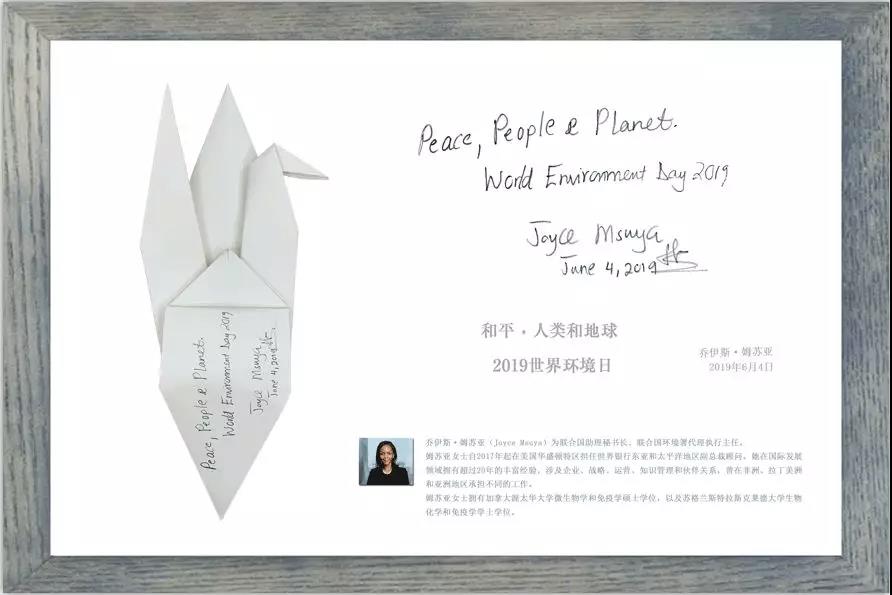 Peace, People & Planet.
World Environment Day 2019
Joyce Msuya
June 4, 2019
Peace, People & Planet.
World Environment Day 2019
Joyce Msuya
June 4, 2019
和平·人类和地球
2019世界环境日
乔伊斯·姆苏亚
2019年6月4日
乔伊斯·姆苏亚（Joyce Msuya）为联合国助理秘书长、联合国环境署代理执行主任。
姆苏亚女士自2017年起在美国华盛顿特区担任世界银行东亚和太平洋地区副总裁顾问。她在国际发展
领域拥有超过20年的丰富经验，涉及企业、战略、运营、知识管理和伙伴关系，曾在非洲、拉丁美洲
和亚洲地区承担不同的工作。
姆苏亚女士拥有加拿大渥太华大学微生物学和免疫学硕士学位，以及苏格兰斯特拉斯克莱德大学生物
化学和免疫学学士学位。